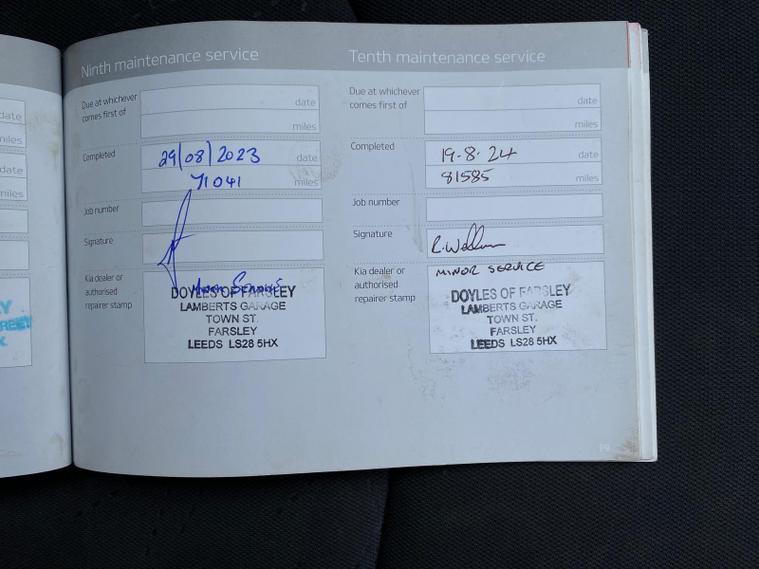 date
miles
date
miles
Y
REET
X
Ninth maintenance service
Due at whichever
comes first of
date
miles
Completed
29/08/2023 date
71041 miles
Job number
Signature
Kia dealer or
authorised
repairer stamp
DOYLES OF FARSLEY
LAMBERTS GARAGE
TOWN ST.
FARSLEY
LEEDS LS28 5HX
Tenth maintenance service
Due at whichever
comes first of
date
miles
Completed
19-8-24 date
81585 miles
Job number
Signature
Kia dealer or
authorised
repairer stamp
MINOR SERVICE
DOYLES OF FARSLEY
LAMBERTS GARAGE
TOWN ST.
FARSLEY
LEEDS LS28 5HX